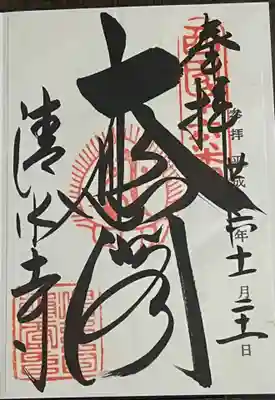 奉拝
参拝 平成廿六年十一月二十一日
大悲閣
清水寺